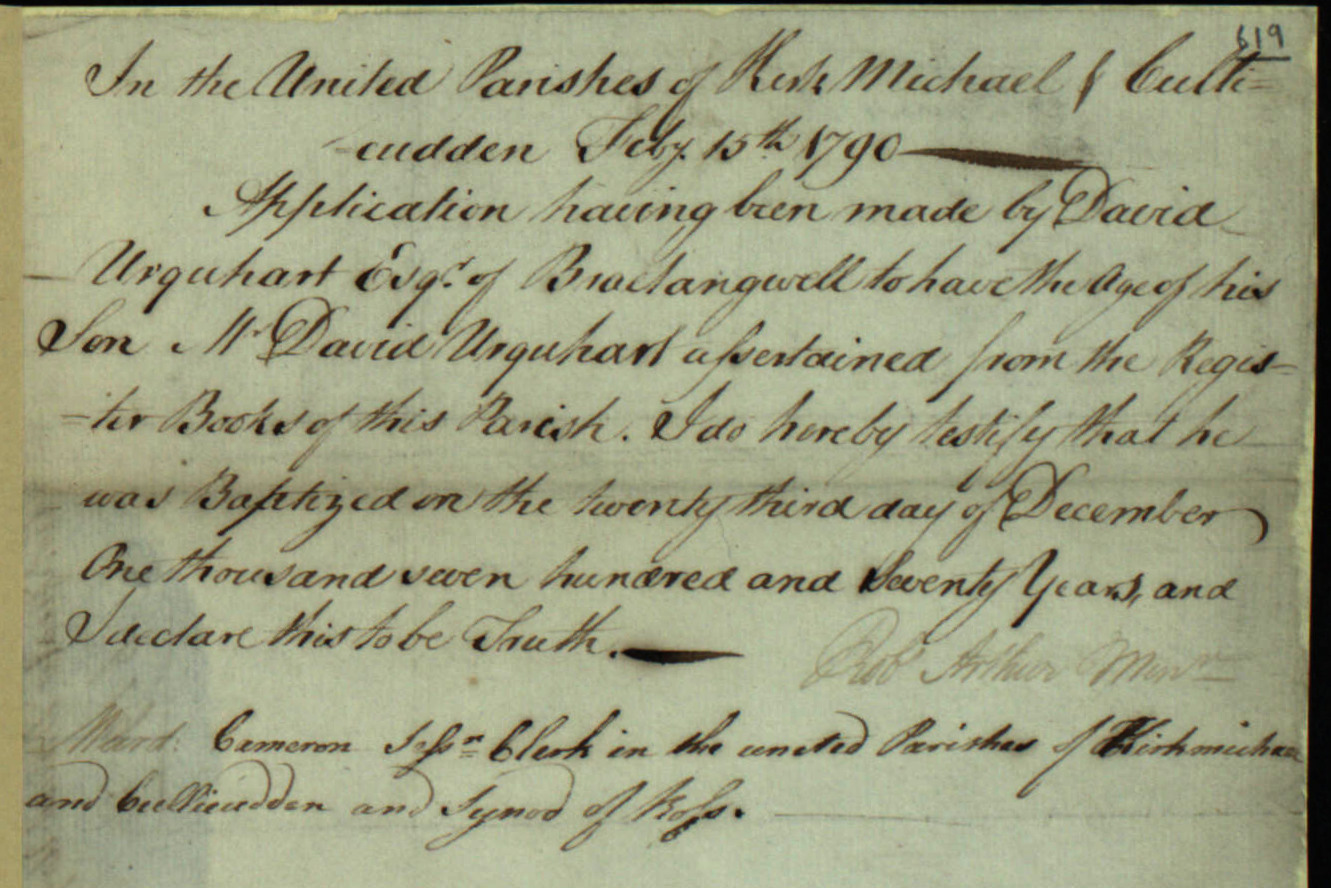 619
In the United Parishes of Kirk Michael & Culli=
-cudden Feby. 15th. 1790
Application having been made by David
Urquhart Esqr. of Braelangwell to have the Age of his
Son Mr David Urquhart assertained from the Regis=
=ter Books of this Parish. I do hereby testify that he
was Baptized on the twenty third day of December
One thousand seven hundred and Seventy Years, and
I declare this to be Truth.
Robt Arthur Minr
Cameron Sessn Clerk in the united Parishes of Kirkmichael
and Cullicudden and Synod of Ross.